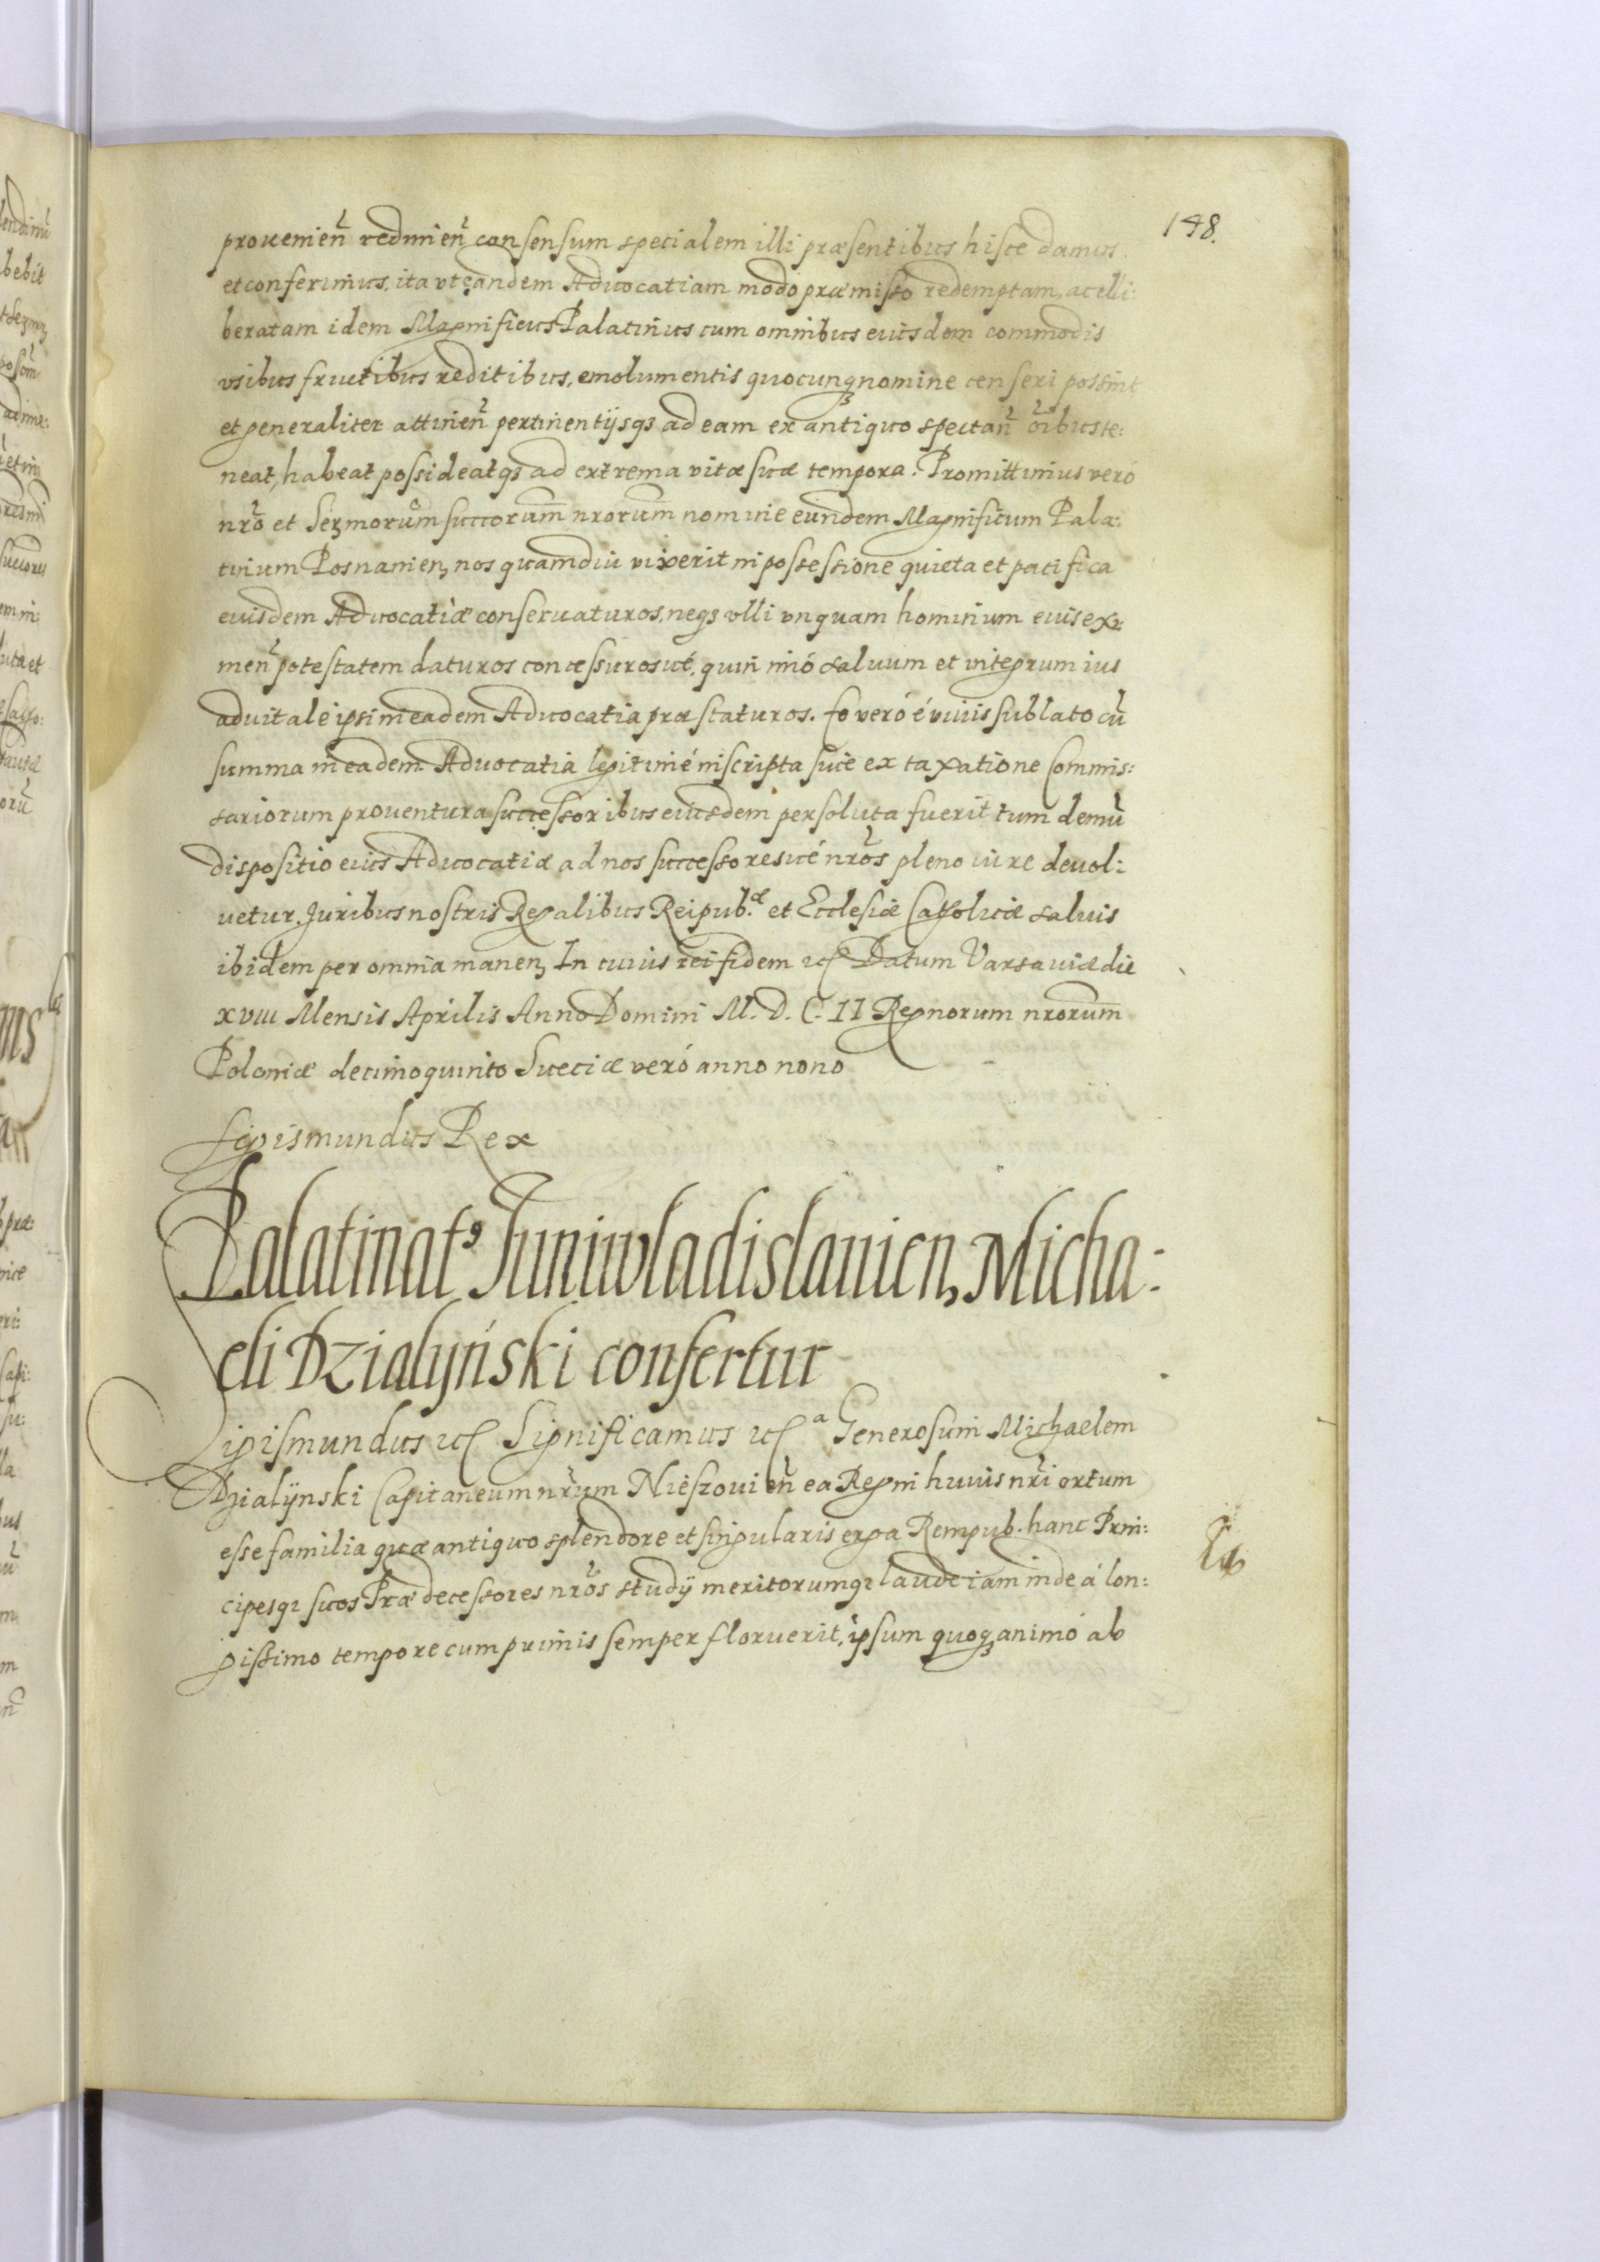 148.
provenien̄ redimen̄ consensum specialem illi præsentibus hisce damus
et conferimus, ita vt eandem Advocatiam modo præmisso redemptam, ac eli:
beratam idem Magnificus Palatinus cum omnibus eiusdem commodis
vsibus fructibus reditibus, emolumentis quocunqȝ nomine censeri possint
et generaliter attinen̄ pertinentijsqȝ ad eam ex antiquo spectan̄ oībus te:
neat, habeat possideatqȝ ad extrema vitæ suæ tempora. Promittimus veró
nrō et Serȝmorūm succorum̄ nrorum̄ nomine eundem Magnificum Pala:
tinum Posnanienȝ nos quamdiu vixerit in possessione quieta et pacifica
eiusdem Advocatiæ conservaturos, neqȝ vlli vnquam hominum eius exi
men̄ potestatem daturos concessurosué, quin imó salvum et integrum ius
advitale ipsi in eadem Advocatia præstaturos. Eo veró é vivis sublato cū
summa in eadem Advocatia legitimé inscripta sive ex taxatione Commis:
sariorum proventura successoribus eiusdem persoluta fuerit tum demū
dispositio eius Advocatiæ ad nos successoresué nrōs pleno iure devol:
vetur. Juribus nostris Regalibus Reipub.æ et Ecclesiæ Catholicæ salvis
ibidem per omnia manenȝ In cuius rei fidem etc Datum Varsaviæ die
xviii Mensis Aprilis Anno Domini M. D. C. II Regnorum nrorum̄
Poloniæ decimo quinto Sueciæ veró anno nono
Sigismundus Rex
Palatinatꝰ Iuniwladislavienȝ Micha:
eli Dzialyński confertur
Sigismundus etc Significamus etcᵃ Generosum Michaelem
Dzialÿnski Capitaneum nrūm Nieszovien̄ ea Regni huius nrī ortum
esse familia quæ antiquo splendore et singularis erga Rempub. hanc Prin:
cipesqȝ suos Prædecessores nrōs studÿ meritorumqȝ laude iam inde á lon:
gissimo tempore cum primis semper floruerit, ipsum quoqȝ animó ab